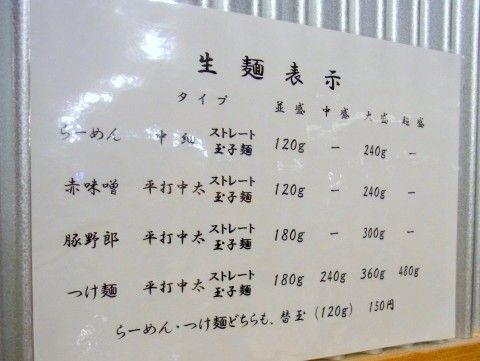 生麺表示
タイプ 並盛 中盛 大盛 超盛
らーめん 中細 ストレート玉子麺 120g ー 240g ー
赤味噌 平打中太 ストレート玉子麺 120g ー 240g ー
豚野郎 平打中太 ストレート玉子麺 180g ー 300g ー
つけ麺 平打中太 ストレート玉子麺 180g 240g 360g 480g
らーめん・つけ麺どちらも、替玉(120g) 150円